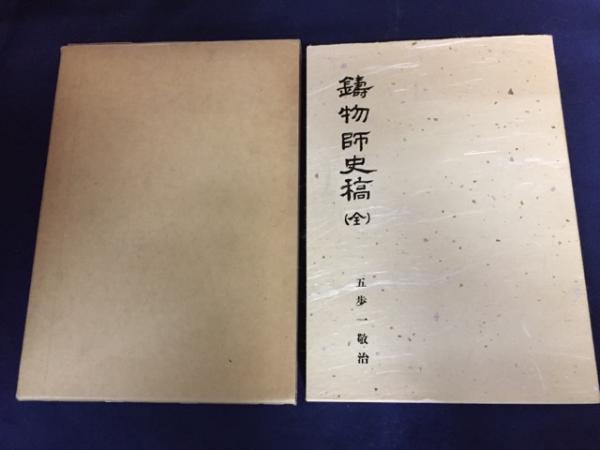 鑄物師史稿(全)
五歩一敬治